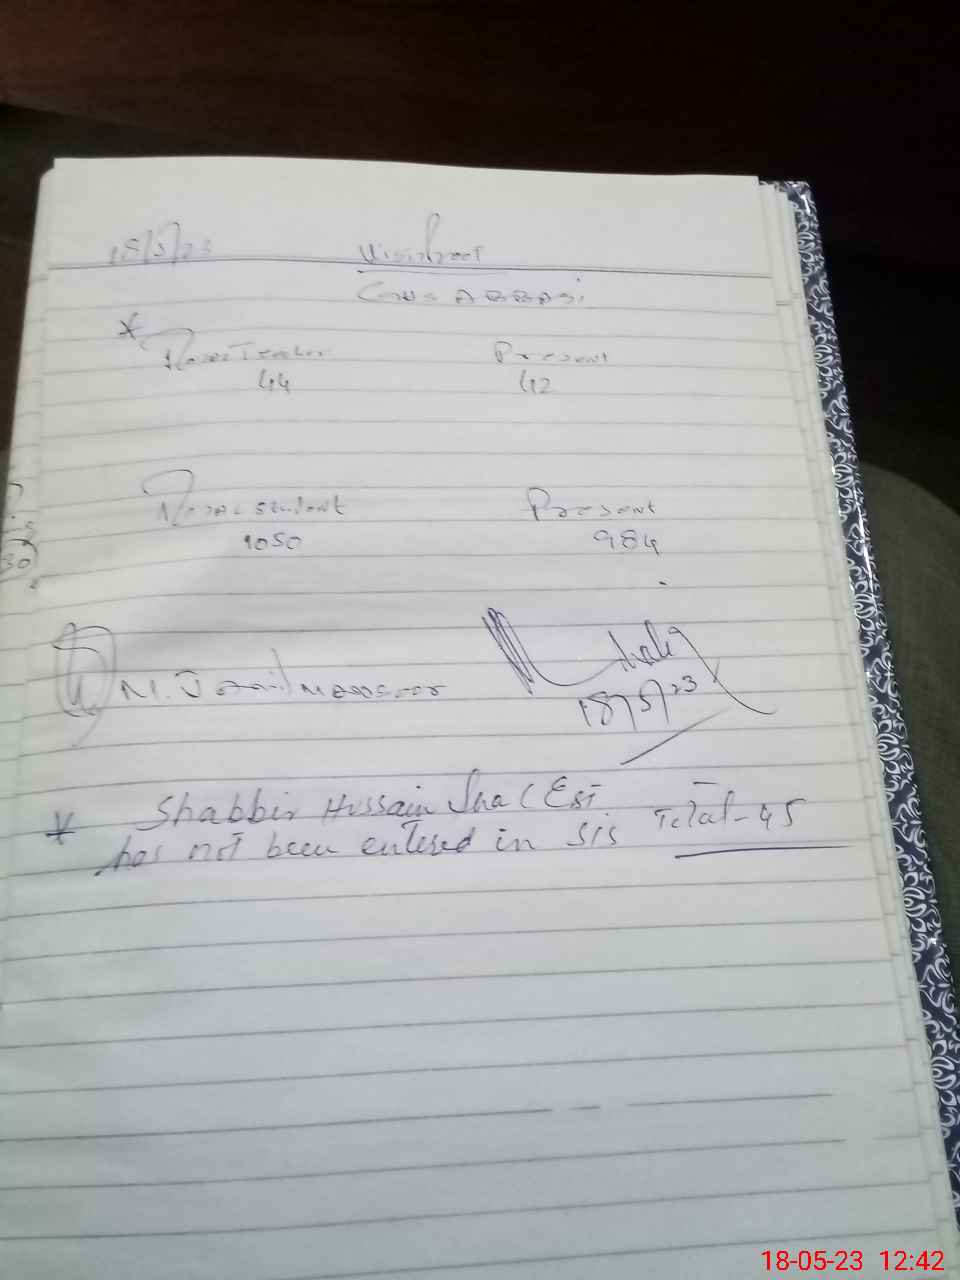 18/5/23
GHS ABBASI
Total Teacher Present
44 42
Total Student Present
1050 984
M. Jamil Mansoor
18/5/23
* Shabbir Hussain Sha (EST
has not been entered in SIS Total-45
30
18-05-23 12:42